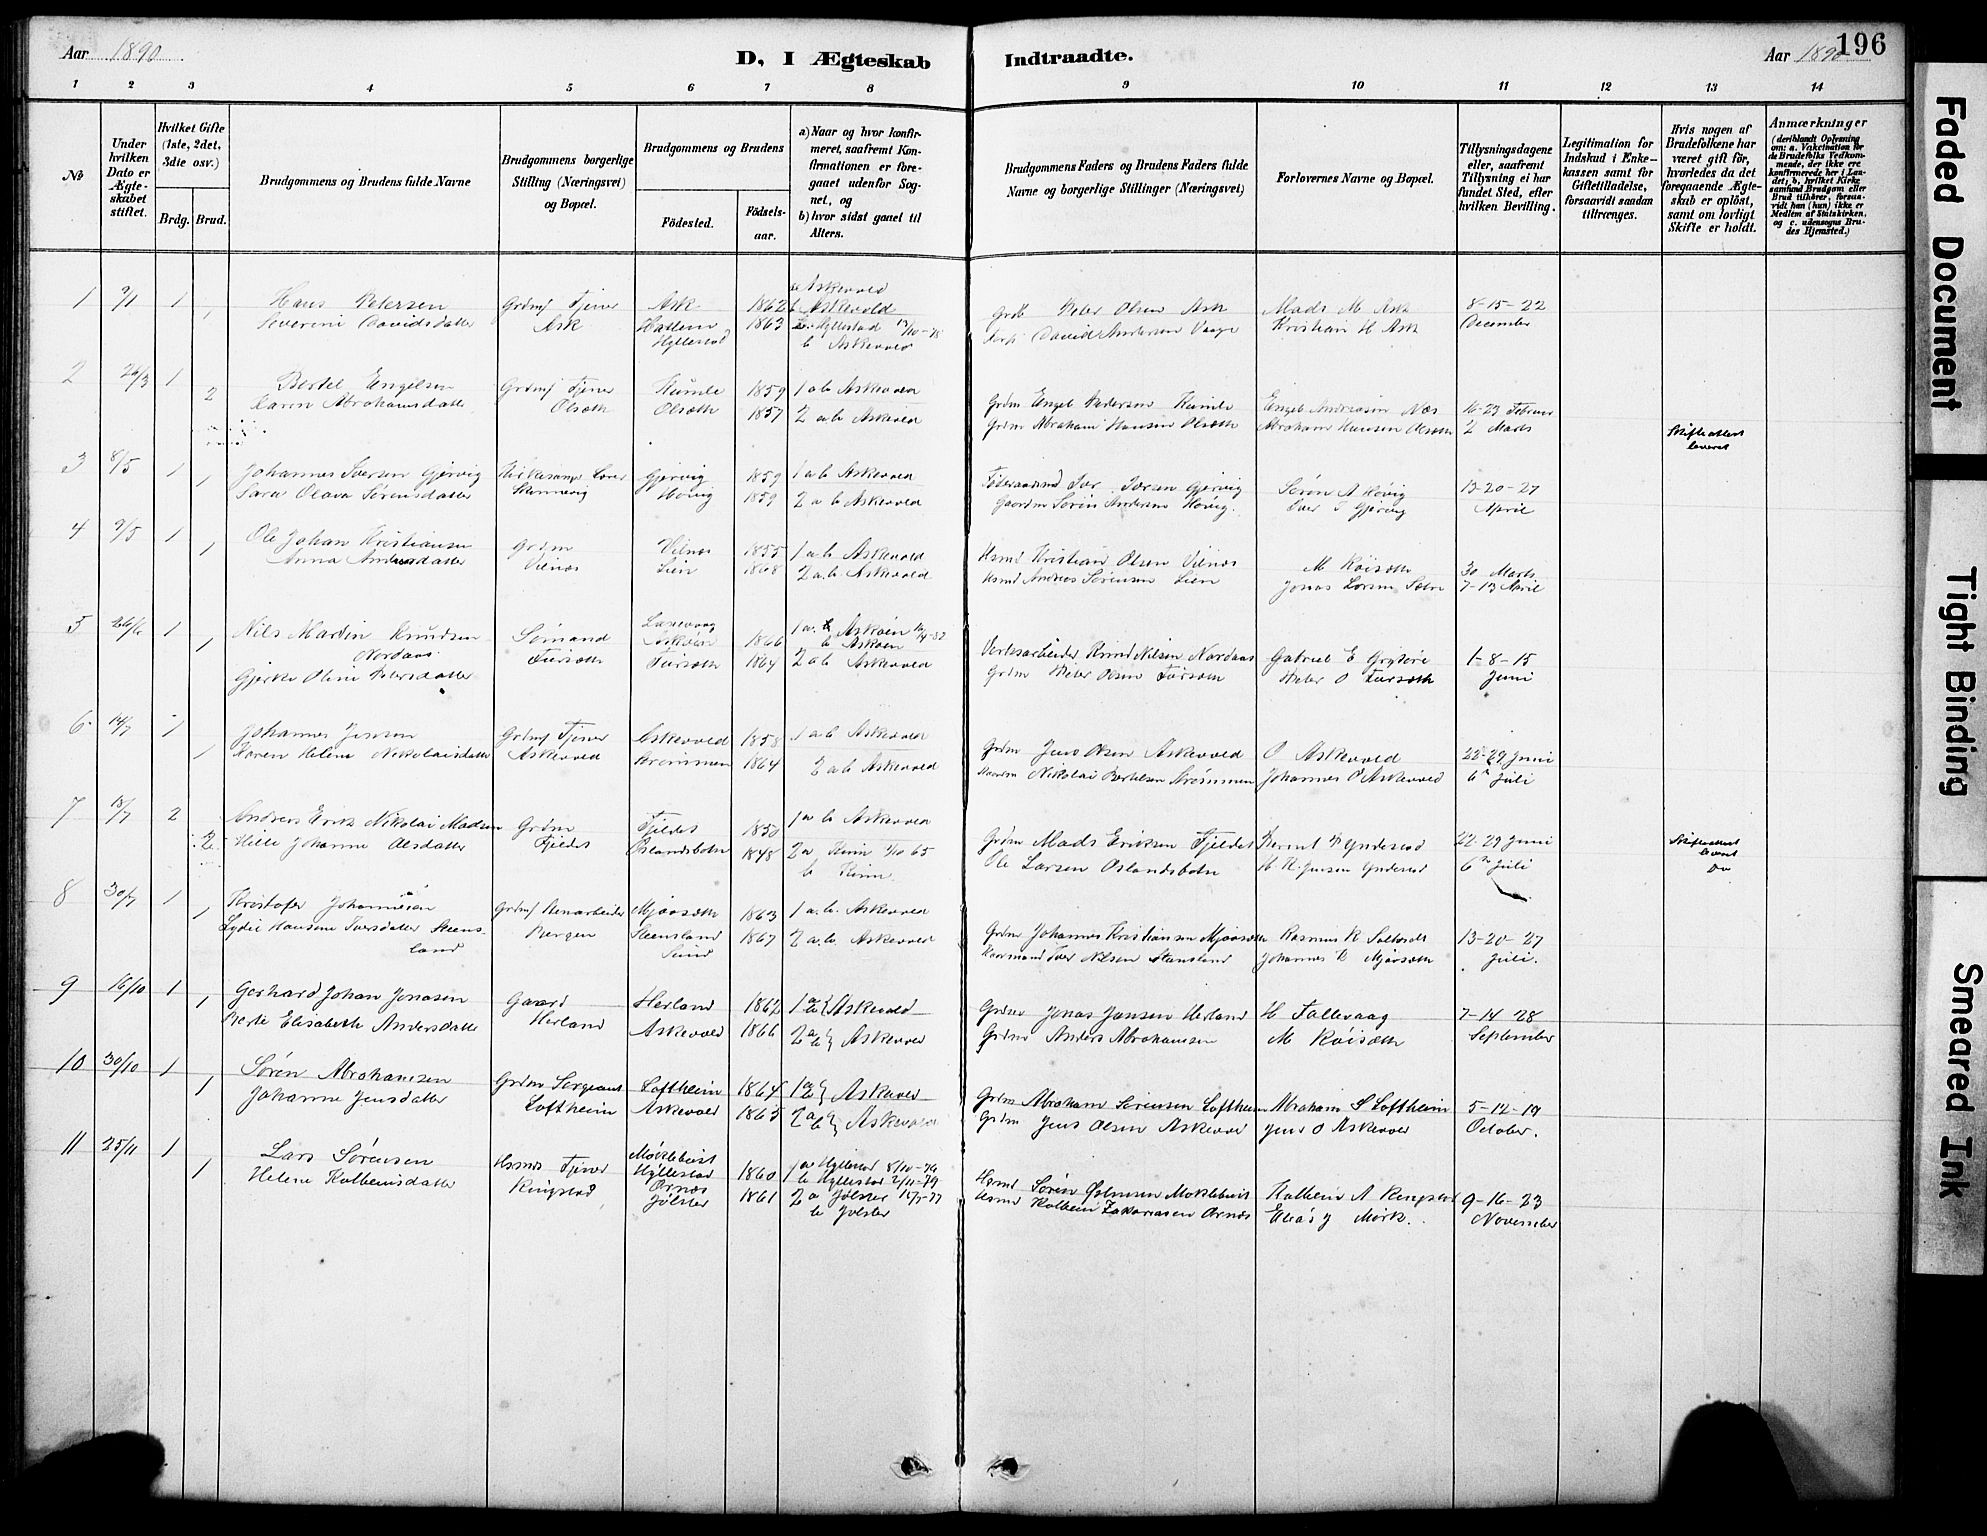 Aar 1890
D, I Ægteskab Indtraadte.
Aar 1890
196
1 2 3 4 5 6 7 8 9 10 11 12 13 14
No
Under hvilken Dato er Ægteskabet stiftet.
Hvilket Gifte (1ste, 2det, 3die osv.)
Brdg. Brud.
Brudgommens og Brudens fulde Navne
Brudgommens borgerlige Stilling (Næringsvei) og Bopæl.
Brudgommens og Brudens
Fødested.
Fødselsaar.
a) Naar og hvor konfirmeret, saafremt Konfirmationen er foregaaet udenfor Sognet, og
b) hvor sidst gaaet til Alters.
Brudgommens Faders og Brudens Faders fulde Navne og borgerlige Stillinger (Næringsvei)
Forlovernes Navne og Bopæl.
Tillysningsdagene eller, saafremt Tillysning ei har fundet Sted, efter hvilken Bevilling.
Legitimation for Indskud i Enkekassen samt for Giftetilladelse, forsaavidt saadan tiltrænges.
Hvis nogen af Brudefolkene har været gift før, hvorledes da det foregaaende Ægteskab er opløst, samt om lovligt Skifte er holdt.
Anmærkninger (deriblandt Oplysning om: a. Vakcination for de Brudefolks Vedkommende, der ikke ere konfirmerede her i Landet; b. hvilket Kirkesamfund Brudgom eller Brud tilhører, forsaavidt han (hun) ikke er Medlem af Statskirken, og c. udensogns Brudes Hjemsted.)
1 9/1 1 Hans Petersen Grdmf Tjener Ask 1862 a Askevold b Askevold Peter Olsen Ask Mads M Ask 8-15-22
1 Severine Davidsdatter Ask Hatlem Hyllestad 1863 Hyllestad b Askevold David Andersen Vaage Kristian H Ask December
2 26/3 1 Bertel Engelsen Grdmf Tjener Rumle 1859 1 a b Askevold Grdm Engel Pedersen Rumle Engel Andreasen Næs 16-23 Februar
2 Karen Abrahamsdatter Olsæth Olsæth 1857 2 a b Askevold Grdm Abraham Hansen Olsæth Abraham Hansen Olsæth 2 Marts Skifteattest leveret
3 8/5 1 Johannes Iversen Gjervig Gjervig 1859 1 a b Askevold Iver Iversen Gjervig Søren A Høvig 13-20-27
1 Sara Olava Sørensdatter Høvig 1859 2 a b Askevold Gaardm Søren Andersen Høvig. Iver I Gjervig April
4 9/5 1 Ole Johan Kristiansen Grdm Vilnæs 1855 1 a b Askevold Hsmd Kristian Olsen Vilnæs M Røisæth 30 Marts
1 Anna Andersdatter Vilnæs Lien 1868 2 a.b. Askevold Hsmd Andreas Sørensen Lien Jonas Larsen Sætre 7-13 April
5 26/6 1 Nils Martin Knudsen Nordaas Sømand Laxevaag Askøen 1866 1 a. Askøen b Askøen Verksarbeider Knud Nilsen Nordaas Gabriel E Grytøre 1-8-15
1 Gjerke Oline Petersdatter Tursæth Tursæth 1864 2 a b Askevold Grdm Peter Olsen Tursæth Peter O Tursæth Juni
6 14/7 1 Johannes Jensen Grdmf Tjener Askevold 1858 1 a b Askevold Grdm Jens Olsen Askevold O Askevold 22-29 Juni
1 Karen Helene Nikolaisdatter Askevold Strømmen 1864 2 a b Askevold Nikolai Bertelsen Strømmen Johannes O Askevold 6te Juli
7 18/7 2 Andreas Erik Nikolai Madsen Grdm Fjeldet 1850 1 a b Askevold Grdm Mads Eriksen Fjeldet Bernt P Yndestad 22-29 Juni Skifteattest leveret
2 Hille Johanne Olsdatter Fjeldet Oslandsbotn 1848 2 a Kinn 1/10 65 b Kinn. Ole Larsen Oslandsbotn H. R. Jensen Yndestad 6te Juli Do
8 30/7 1 Kristofer Johannesen Grdmf Stenarbeider Mjaasæth 1863 1 a. b. Askevold Grdm Johannes Kristiansen Mjaasæth Rasmus R 13-20-27
1 Lydie Hansene Iversdatter Steensland Bergen Steensland Sund 1867 2 a. b. Askevold Iver Nilsen Steensland Johannes K Mjaasæth Juli.
9 16/10 1 Gerhard Johan Jonasen Gaard Herland 1862 1 a b Askevold Grdm Jonas Jansen Herland H Fallevaag 7-14 28
1 Berte Elisabeth Andersdatter Herland Askevold 1866 2 a b Askevold Grdm Anders Abrahamsen M Røisæth September
10 30/10 1 Søren Abrahamsen Grdm Sergeant Loftheim 1864 1 a b Askevold Grdm Abraham Sørensen Loftheim Abraham S Loftheim 5-12-19
1 Johanne Jensdatter Loftheim Askevold 1865 2 a b Askevold Grdm Jens Olsen Askevold Jens O Askevold October.
11 25/11 1 Lars Sørensen Tjener Møklebust Hyllestad 1860 1 a Hyllestad b Hyllestad Hsmd Søren Møklebust Kolbein A Ringstad 9-16-23
1 Helene Kolbeinsdatter Ringstad Ørnæs Jølster 1861 2 a Jølster b Jølster Hsmd Kolbein Zakariasen Ørnæs Elias J Mørk. November
Faded Document
Tight Binding
Smeared Ink